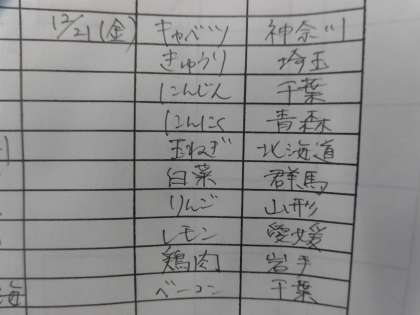 12/21(金) キャベツ 神奈川
きゅうり 埼玉
にんじん 千葉
にんにく 青森
玉ねぎ 北海道
白菜 群馬
りんご 山形
レモン 愛媛
鶏肉 岩手
海 ベーコン 千葉